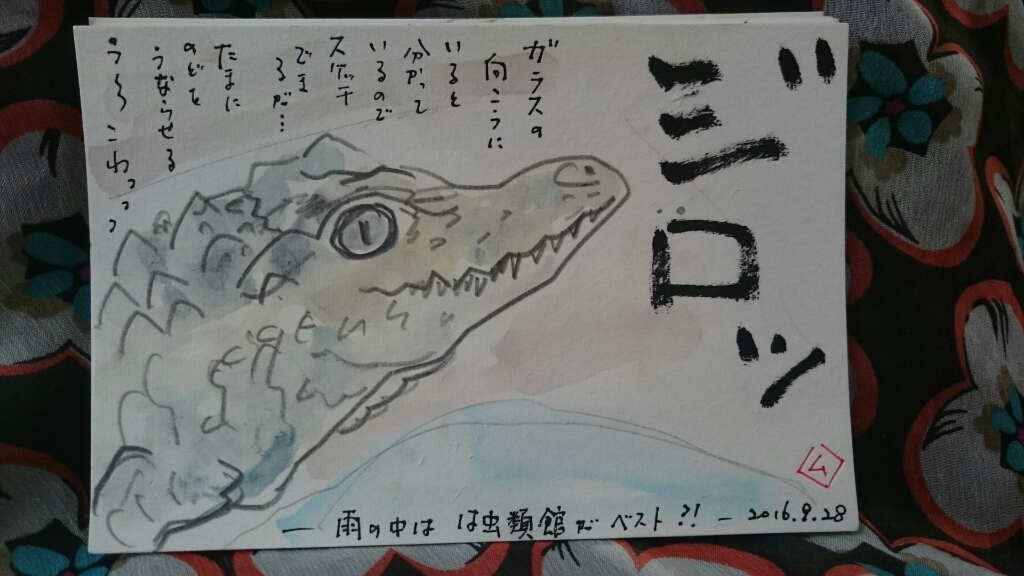 ジロッ
ガラスの
向こうに
いると
分かって
いるので
スケッチ
できるが…
たまに
のどを
うならせる
う〜こわっっっ
ム
― 雨の中は は虫類館がベスト?! ― 2016.9.28